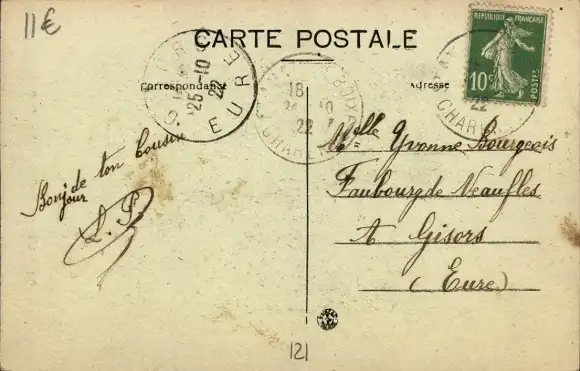 11€
CARTE POSTALE
Correspondance
Adresse
RÉPUBLIQUE FRANÇAISE
10c
POSTES
GISORS
25-10
22
EURE
18
22
CHARENTE
22
CHAR
Bonjour
de ton Cousin
L. P.
Mlle Yvonne Bourgeois
Faubourg de Neaufles
A Gisors
(Eure)
121